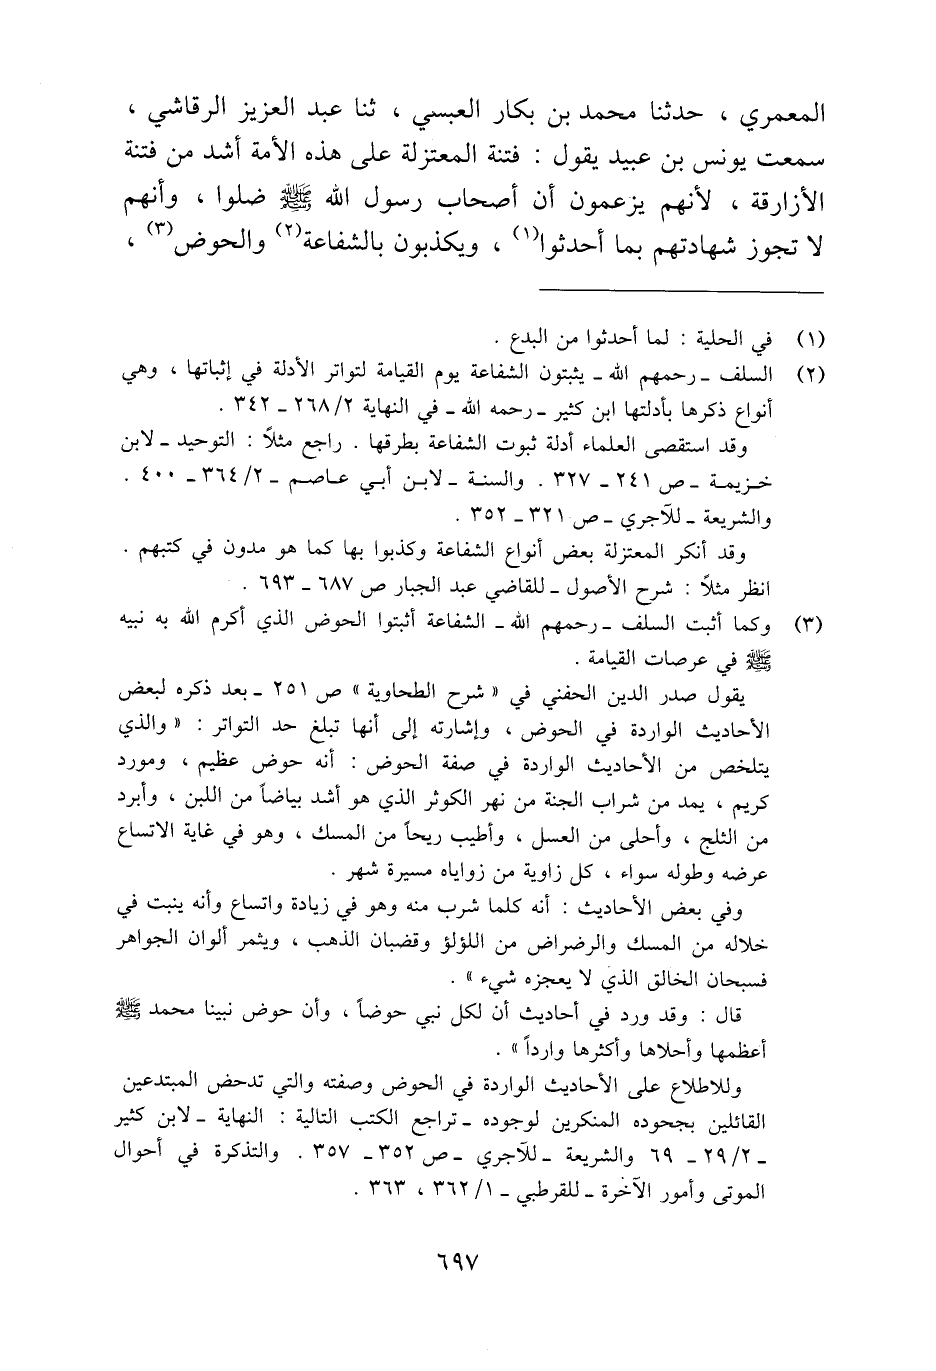 المعمري ، حدثنا محمد بن بكار العبسي ، ثنا عبد العزيز الرقاشي ،
سمعت يونس بن عبيد يقول : فتنة المعتزلة على هذه الأمة أشد من فتنة
الأزارقة ، لأنهم يزعمون أن أصحاب رسول الله ﷺ ضلوا ، وأنهم
لا تجوز شهادتهم بما أحدثوا(١) ، ويكذبون بالشفاعة(٢) والحوض(٣) ،
(١) في الحلية : لما أحدثوا من البدع .
(٢) السلف ـ رحمهم الله ـ يثبتون الشفاعة يوم القيامة لتواتر الأدلة في إثباتها ، وهي
أنواع ذكرها بأدلتها ابن كثير ـ رحمه الله ـ في النهاية ٢٦٨/٢ ـ ٣٤٢ .
وقد استقصى العلماء أدلة ثبوت الشفاعة بطرقها . راجع مثلاً : التوحيد ـ لابن
خزيمة ـ ص ٢٤١ ـ ٣٢٧ . والسنة ـ لابن أبي عاصم ـ ٣٦٤/٢ ـ ٤٠٠ .
والشريعة ـ للآجري ـ ص ٣٢١ ـ ٣٥٢ .
وقد أنكر المعتزلة بعض أنواع الشفاعة وكذبوا بها كما هو مدون في كتبهم .
انظر مثلاً : شرح الأصول ـ للقاضي عبد الجبار ص ٦٨٧ ـ ٦٩٣ .
(٣) وكما أثبت السلف ـ رحمهم الله ـ الشفاعة أثبتوا الحوض الذي أكرم الله به نبيه
ﷺ في عرصات القيامة .
يقول صدر الدين الحفني في « شرح الطحاوية » ص ٢٥١ ـ بعد ذكره لبعض
الأحاديث الواردة في الحوض ، وإشارته إلى أنها تبلغ حد التواتر : « والذي
يتلخص من الأحاديث الواردة في صفة الحوض : أنه حوض عظيم ، ومورد
كريم ، يمد من شراب الجنة من نهر الكوثر الذي هو أشد بياضاً من اللبن ، وأبرد
من الثلج ، وأحلى من العسل ، وأطيب ريحاً من المسك ، وهو في غاية الاتساع
عرضه وطوله سواء ، كل زاوية من زواياه مسيرة شهر .
وفي بعض الأحاديث : أنه كلما شرب منه وهو في زيادة واتساع وأنه ينبت في
خلاله من المسك والرضراض من اللؤلؤ وقضبان الذهب ، ويثمر ألوان الجواهر
فسبحان الخالق الذي لا يعجزه شيء » .
قال : وقد ورد في أحاديث أن لكل نبي حوضاً ، وأن حوض نبينا محمد ﷺ
أعظمها وأحلاها وأكثرها وارداً » .
وللاطلاع على الأحاديث الواردة في الحوض وصفته والتي تدحض المبتدعين
القائلين بجحوده المنكرين لوجوده ـ تراجع الكتب التالية : النهاية ـ لابن كثير
ـ ٢٩/٢ ـ ٦٩ والشريعة ـ للآجري ـ ص ٣٥٢ ـ ٣٥٧ . والتذكرة في أحوال
الموتى وأمور الآخرة ـ للقرطبي ـ ٣٦٢/١ ، ٣٦٣ .
٦٩٧